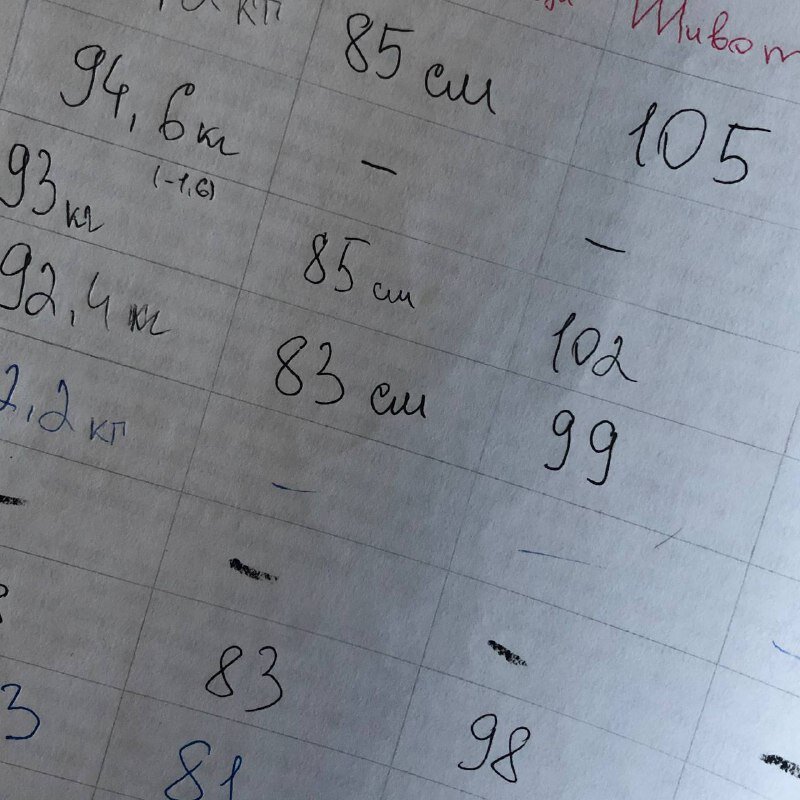 Живот
кг 85 см 105
94,6 кг - -
93 кг (-1,6) 85 см 102
92,4 кг 83 см 99
2,2 кг - -
- - -
83 98
3 81